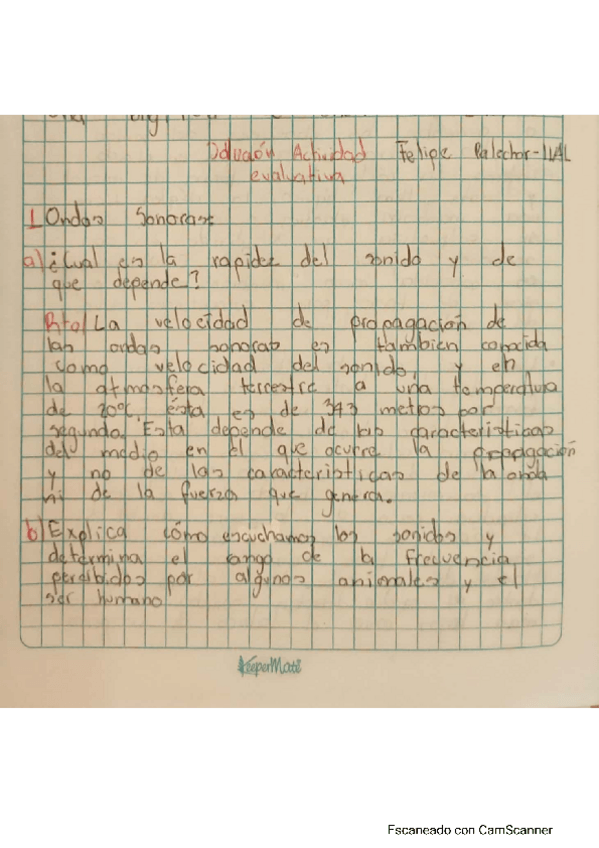 Solución Actividad Felipe Palechor-11AL
evaluativa
1. Ondas Sonoras
a) ¿Cual es la rapidez del sonido y de
que depende?
Rta/ La velocidad de propagación de
las ondas sonoras es tambien conocida
como velocidad del sonido, y en
la atmosfera terrestre a una temperatura
de 20°c, ésta es de 343 metros por
segundo. Esta depende de las caracteristicas
del medio en el que ocurre la propagación
y no de las caracteristicas de la onda
ni de la fuerza que genera.
b) Explica cómo escuchamos los sonidos y
determina el rango de la frecuencia
percibidos por algunos animales y el
ser humano
KeeperMate
Escaneado con CamScanner